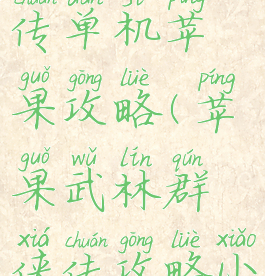 chuán dān jī píng
传单机苹
guǒ gōng lüè píng
果攻略(苹
guǒ wǔ lín qún
果武林群
xiá chuán gōng lüè xiǎo
侠传攻略小